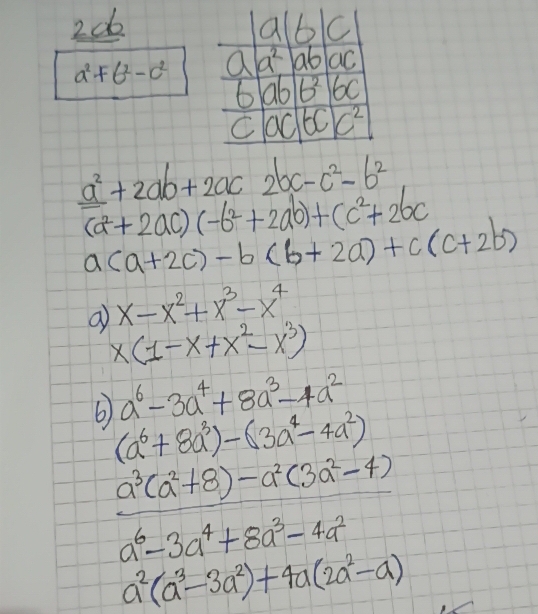 2ab
a²+b²-c²
a b c
a a² ab ac
b ab b² bc
c ac bc c²
a² + 2ab + 2ac 2bc - c² - b²
(a² + 2ac) (-b² + 2ab) + (c² + 2bc
a(a + 2c) - b (b + 2a) + c (c + 2b)
a) x - x² + x³ - x⁴
x(1 - x + x² - x³)
b) a⁶ - 3a⁴ + 8a³ - 4a²
(a⁶ + 8a³) - (3a⁴ - 4a²)
a³(a² + 8) - a²(3a² - 4)
a⁶ - 3a⁴ + 8a³ - 4a²
a²(a³ - 3a²) + 4a(2a² - a)